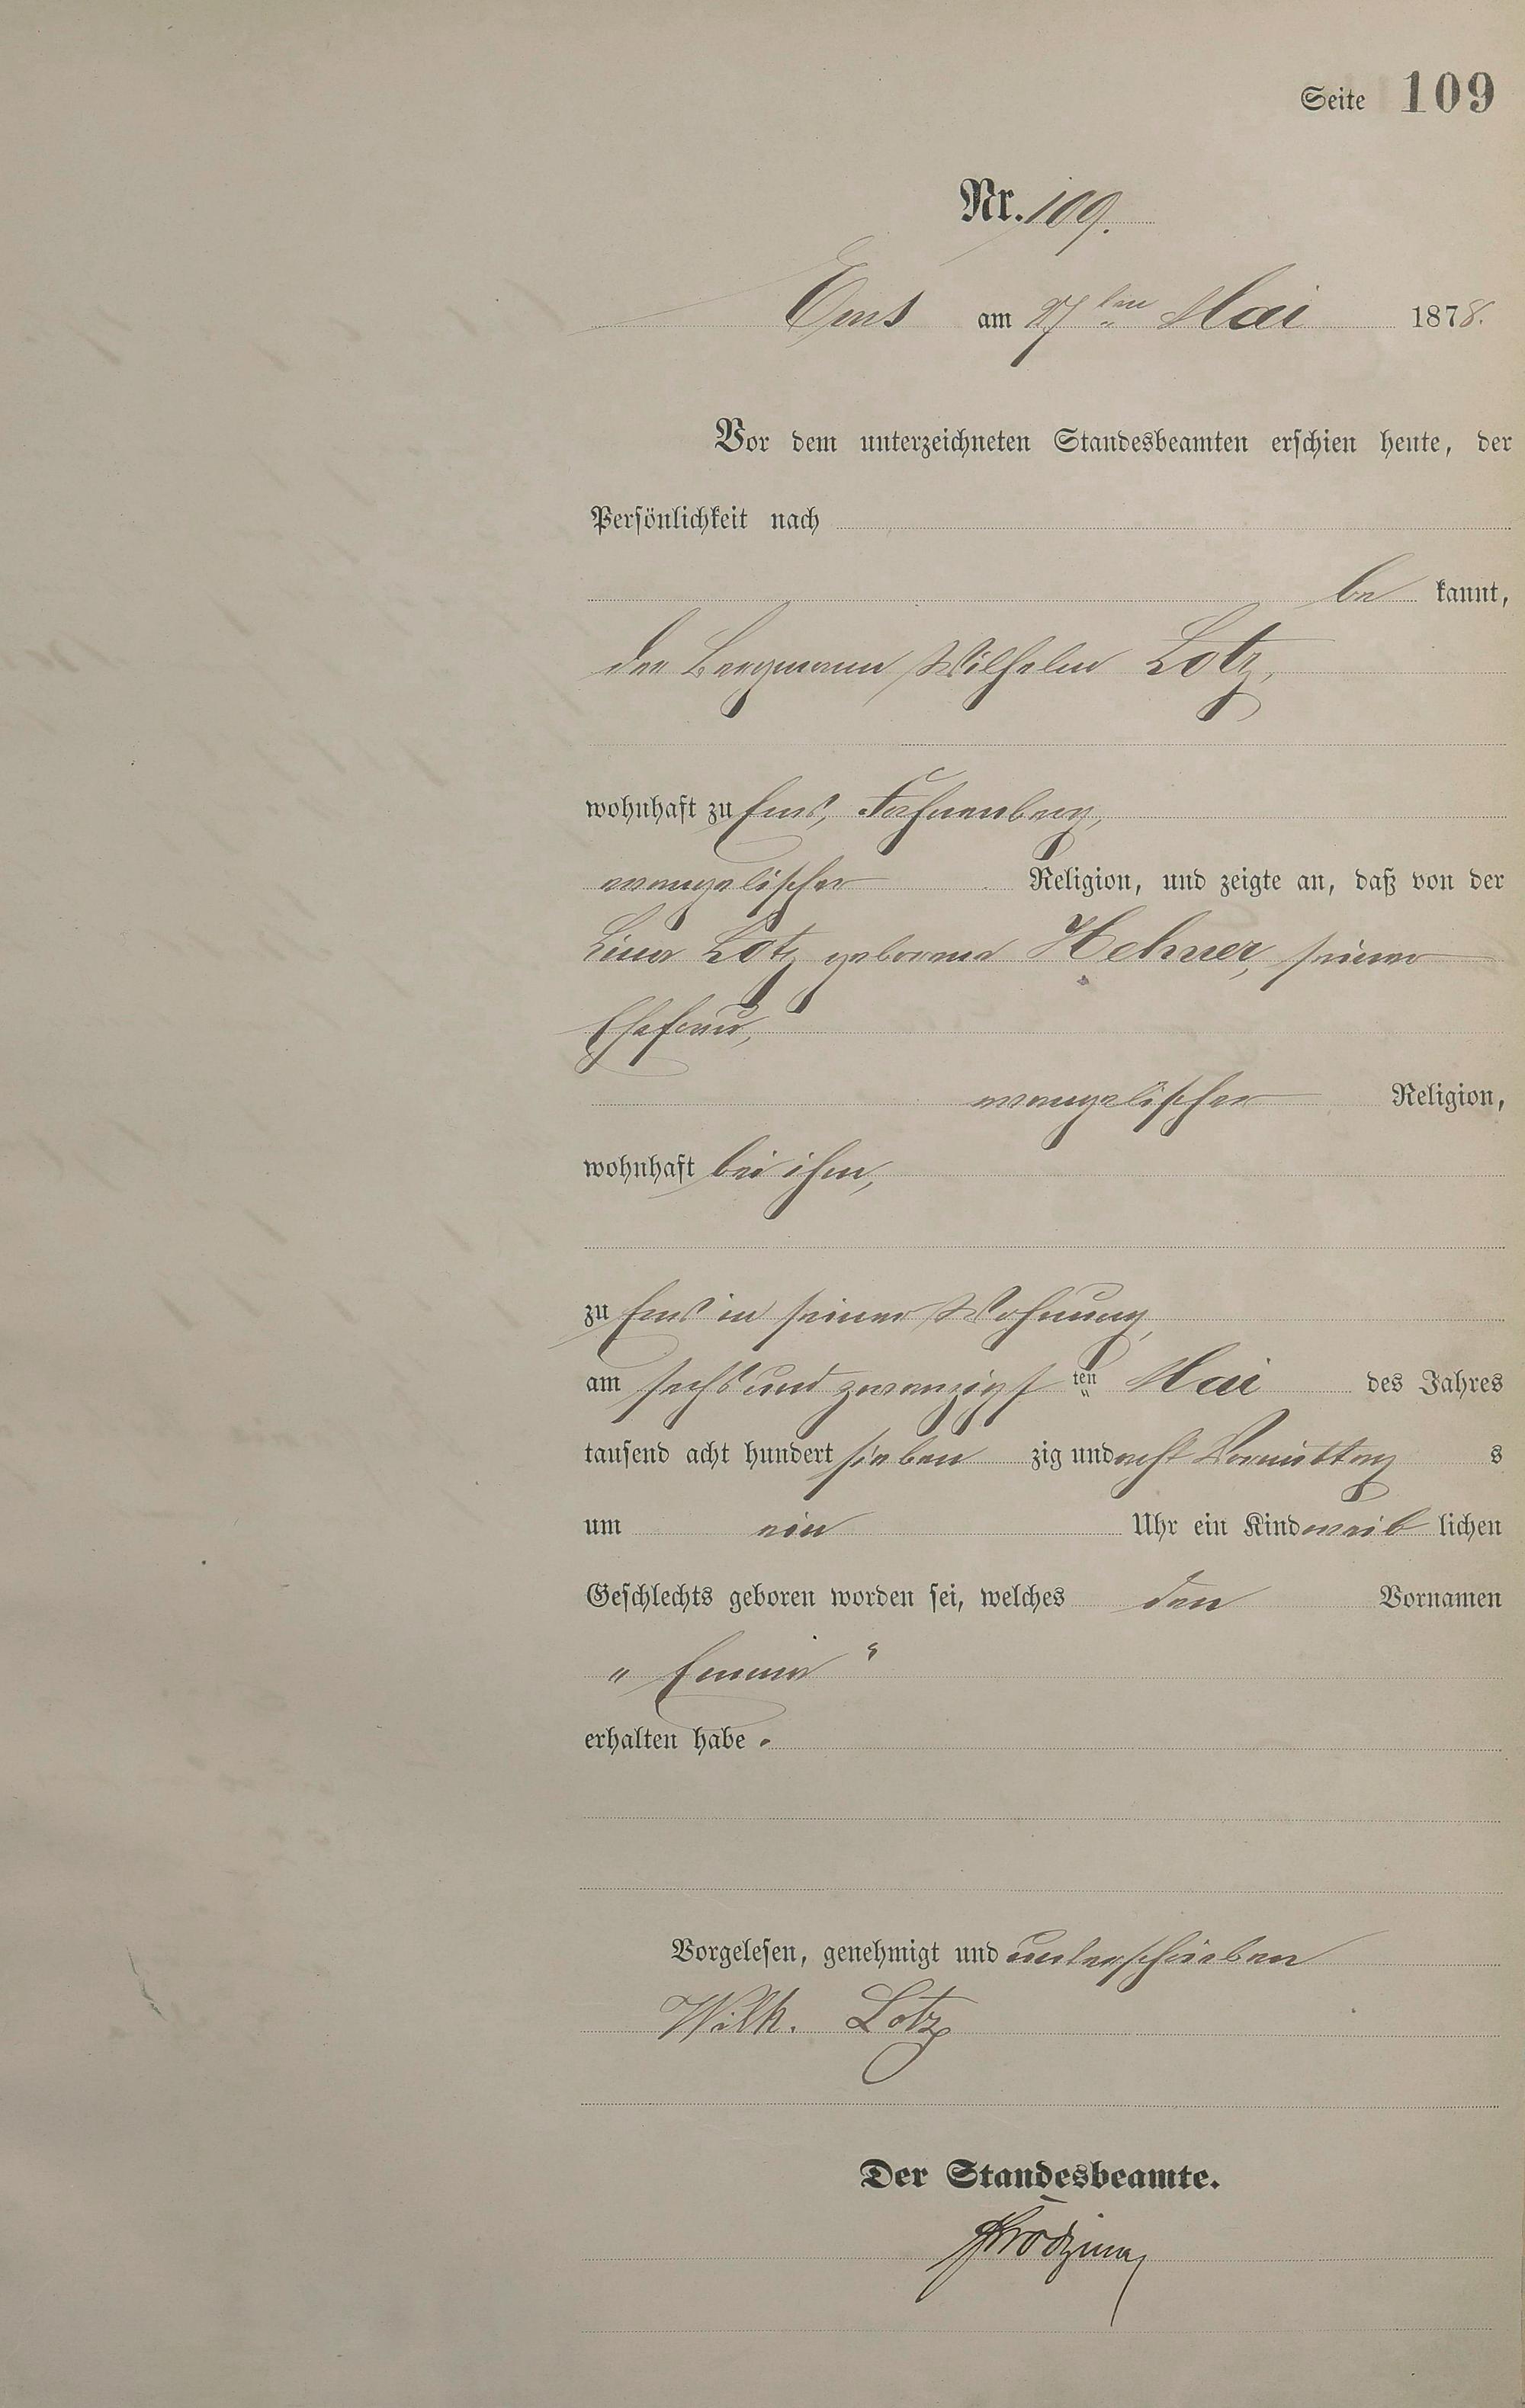 Seite 109
Nr. 109.
Ems am 27ten Mai 1878.
Vor dem unterzeichneten Standesbeamten erschien heute, der
Persönlichkeit nach
be kannt,
der Bergmann Wilhelm Lotz,
wohnhaft zu Ems, Fahnenberg,
evangelischer Religion, und zeigte an, daß von der
Lina Lotz geborene Hehner, seiner
Ehefrau,
evangelischer Religion,
wohnhaft bei ihm,
zu Ems in seiner Wohnung,
am sechs und zwanzigs ten Mai des Jahres
tausend acht hundert sieben zig und acht Vormittag s
um ein Uhr ein Kind weib lichen
Geschlechts geboren worden sei, welches den Vornamen
„ Emma “
erhalten habe.
Vorgelesen, genehmigt und unterschrieben
Wilh. Lotz
Der Standesbeamte.